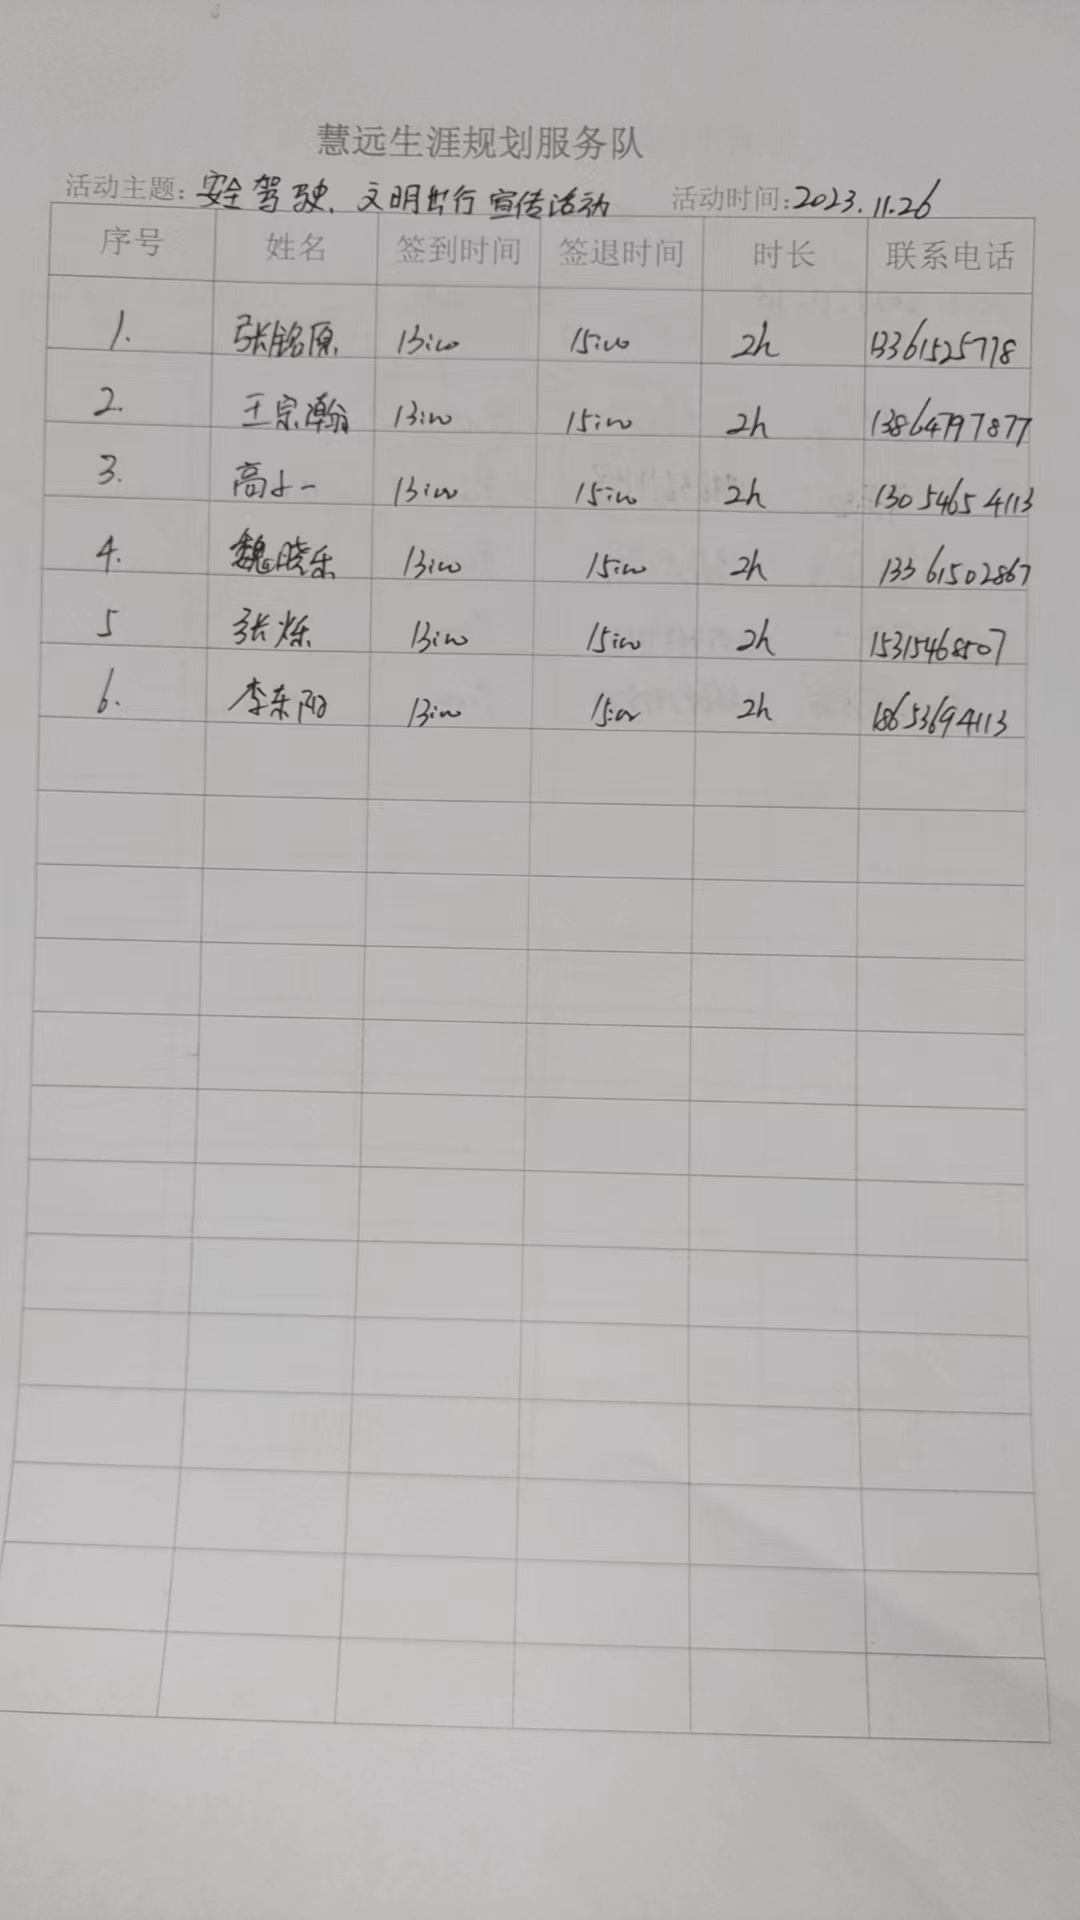 慧远生涯规划服务队
活动主题: 安全驾驶、文明出行宣传活动 活动时间: 2023.11.26
序号 姓名 签到时间 签退时间 时长 联系电话
1. 张铭原 13:00 15:00 2h 13361525778
2. 王宗瀚 13:00 15:00 2h 13864797877
3. 高 一 13:00 15:00 2h 13054654113
4. 魏晓乐 13:00 15:00 2h 13361502867
5 张烁 13:00 15:00 2h 15315468507
6. 李东阳 13:00 15:00 2h 18653694113